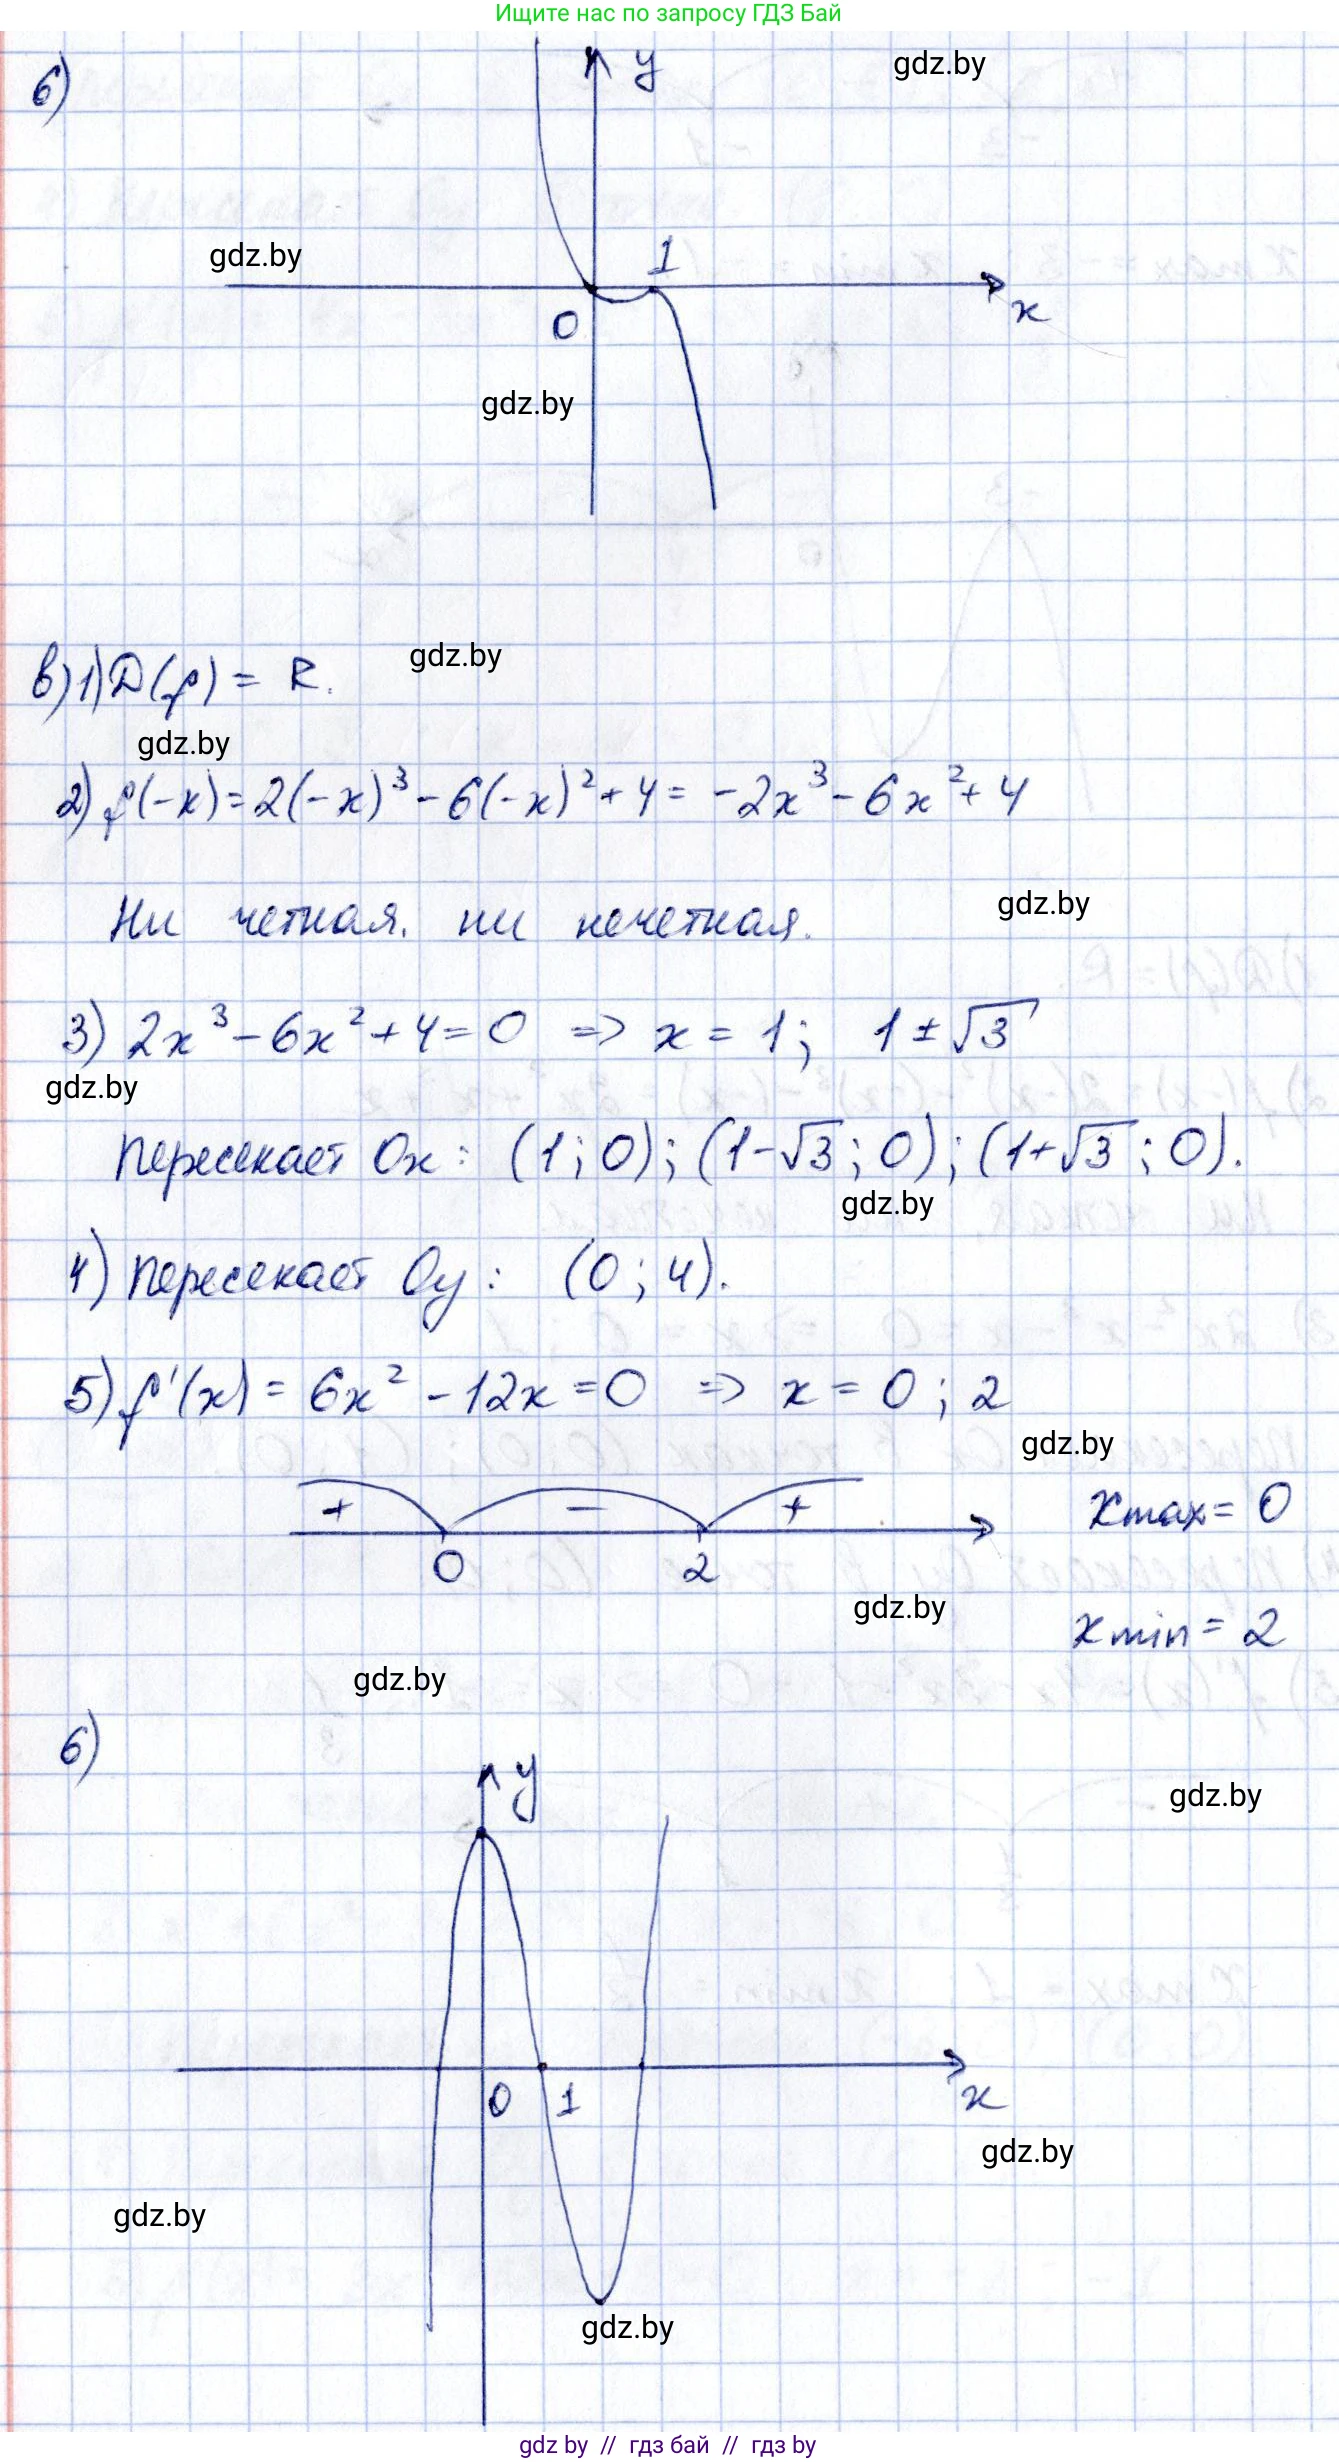 Ищите нас по запросу ГДЗ Бай
6)
y
gdz.by
gdz.by
1
0
x
gdz.by
в) 1) D(f) = R.
gdz.by
gdz.by
2) f(-x) = 2(-x)³ - 6(-x)² + 4 = -2x³ - 6x² + 4
Ни четная. ни нечетная.
gdz.by
3) 2x³ - 6x² + 4 = 0 => x = 1; 1 ± √3
gdz.by
Пересекает Ox: (1; 0); (1-√3; 0); (1+√3; 0).
gdz.by
4) Пересекает Oy: (0; 4).
5) f'(x) = 6x² - 12x = 0 => x = 0; 2
gdz.by
+ - +
xmax = 0
0 2
gdz.by
xmin = 2
gdz.by
6)
y
gdz.by
0 1
x
gdz.by
gdz.by
gdz.by
gdz by // гдз бай // гдз by